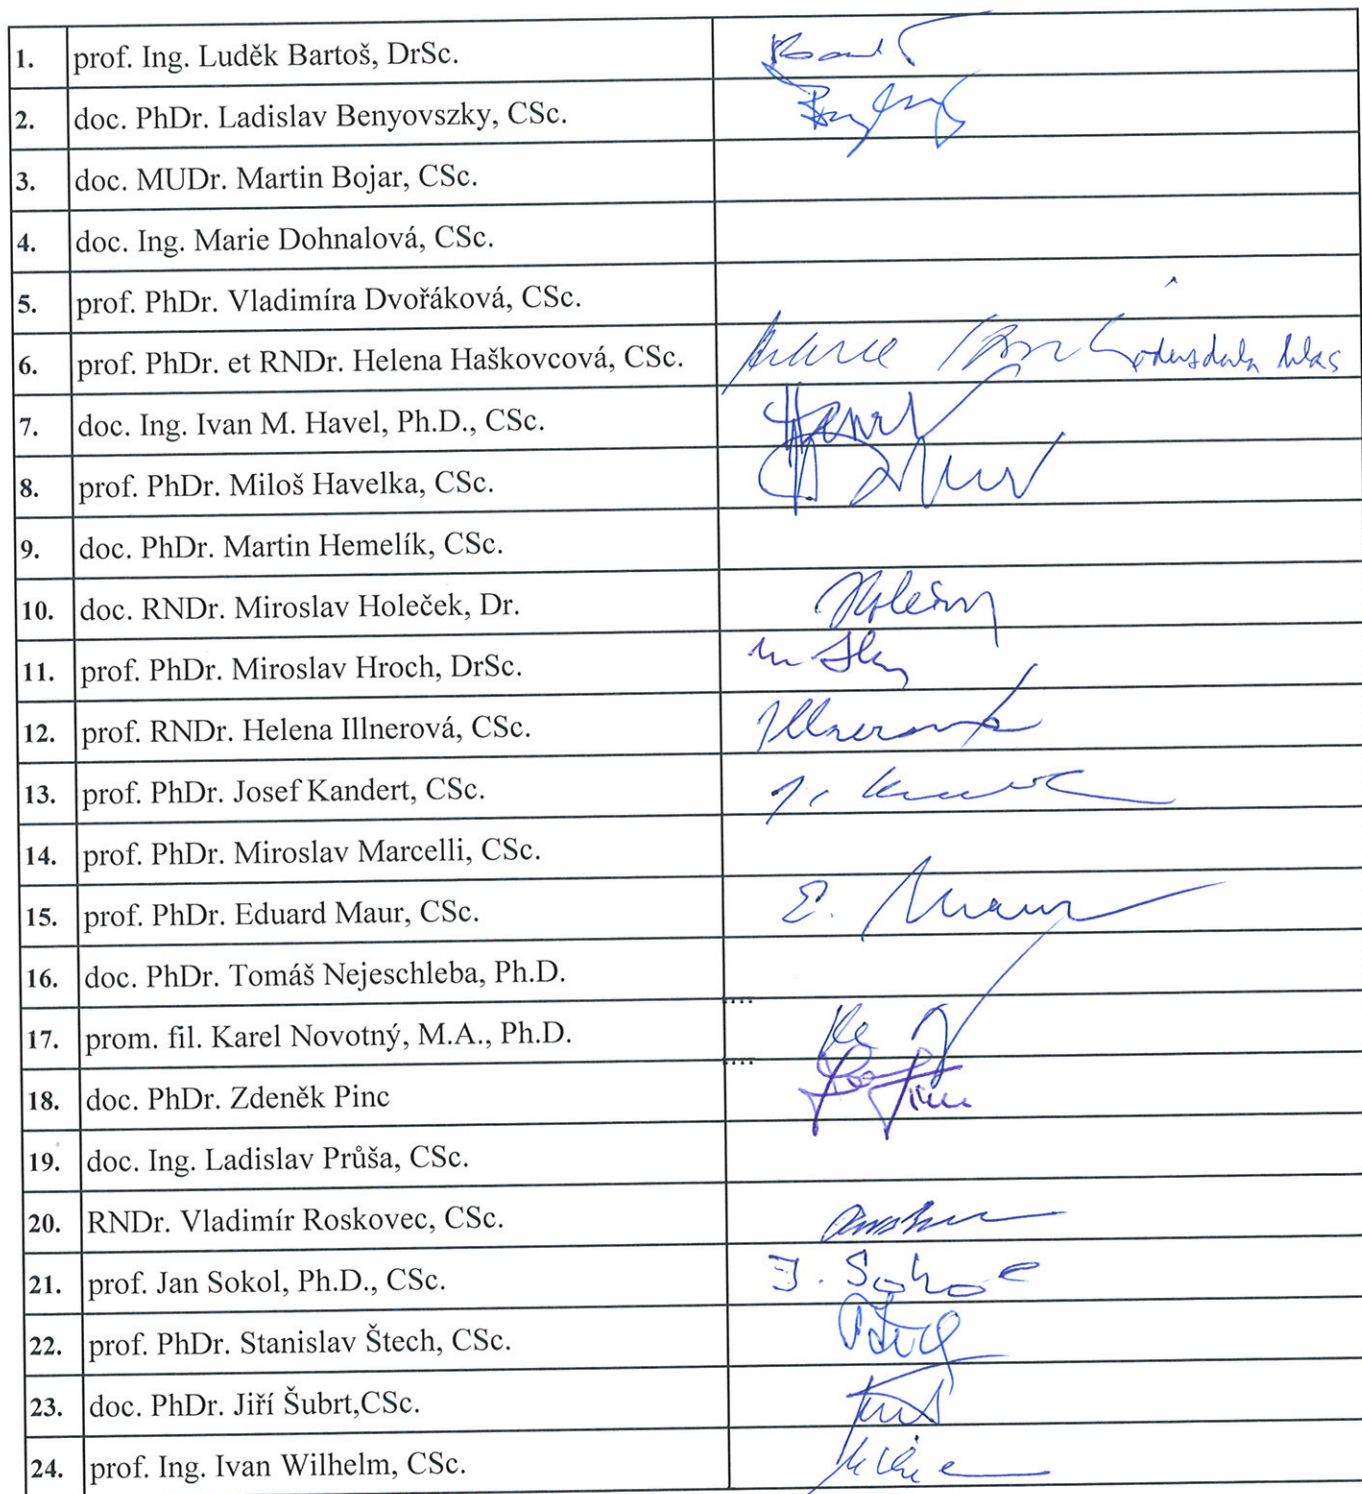 1. prof. Ing. Luděk Bartoš, DrSc.
2. doc. PhDr. Ladislav Benyovszky, CSc.
3. doc. MUDr. Martin Bojar, CSc.
4. doc. Ing. Marie Dohnalová, CSc.
5. prof. PhDr. Vladimíra Dvořáková, CSc.
6. prof. PhDr. et RNDr. Helena Haškovcová, CSc. hlas
7. doc. Ing. Ivan M. Havel, Ph.D., CSc. Havel
8. prof. PhDr. Miloš Havelka, CSc.
9. doc. PhDr. Martin Hemelík, CSc.
10. doc. RNDr. Miroslav Holeček, Dr.
11. prof. PhDr. Miroslav Hroch, DrSc.
12. prof. RNDr. Helena Illnerová, CSc. Illnerová
13. prof. PhDr. Josef Kandert, CSc.
14. prof. PhDr. Miroslav Marcelli, CSc.
15. prof. PhDr. Eduard Maur, CSc. E. Maur
16. doc. PhDr. Tomáš Nejeschleba, Ph.D.
17. prom. fil. Karel Novotný, M.A., Ph.D.
18. doc. PhDr. Zdeněk Pinc
19. doc. Ing. Ladislav Průša, CSc.
20. RNDr. Vladimír Roskovec, CSc.
21. prof. Jan Sokol, Ph.D., CSc. J. Sokol
22. prof. PhDr. Stanislav Štech, CSc.
23. doc. PhDr. Jiří Šubrt,CSc.
24. prof. Ing. Ivan Wilhelm, CSc.